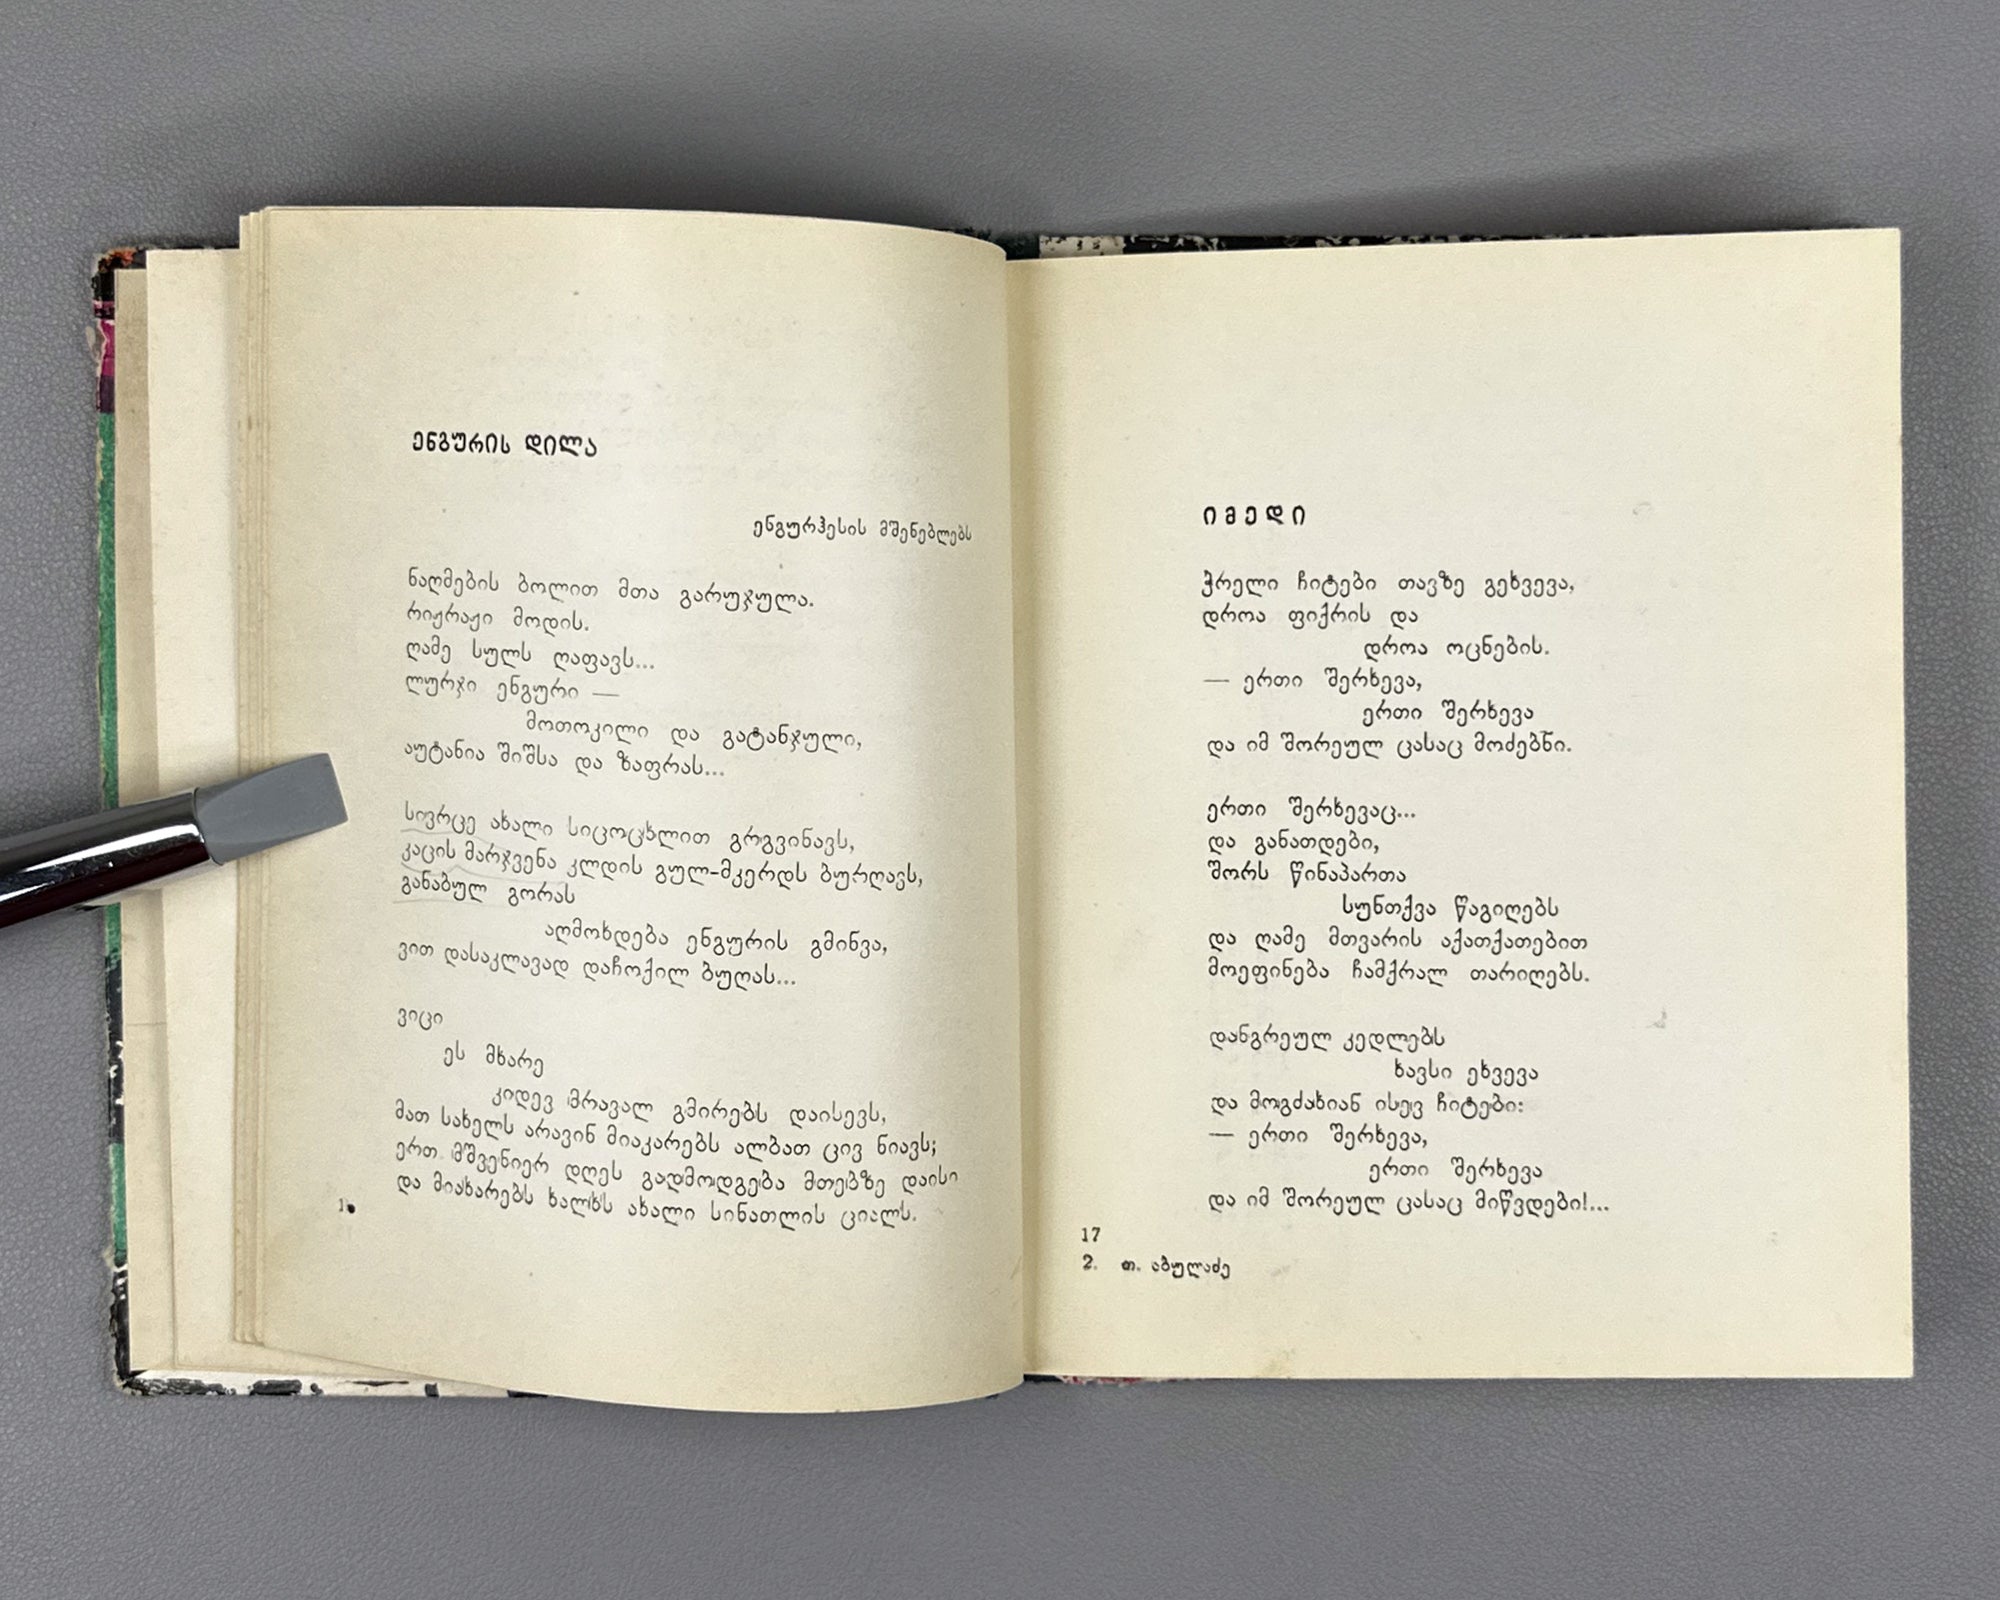 ენგურის დილა
ენგურჰესის მშენებლებს
ნაღმების ბოლით მთა გარუჯულა.
რიჟრაჟი მოდის.
ღამე სულს ღაფავს...
ლურჯი ენგური —
მოთოკილი და გატანჯული,
აუტანია შიშსა და ზაფრას...
სივრცე ახალი სიცოცხლით გრგვინავს,
კაცის მარჯვენა კლდის გულ-მკერდს ბურღავს,
განაბულ გორას
აღმოხდება ენგურის გმინვა,
ვით დასაკლავად დაჩოქილ ბუღას...
ვიცი
ეს მხარე
კიდევ მრავალ გმირებს დაისევს,
მათ სახელს არავინ მიაკარებს ალბათ ცივ ნიავს;
ერთ მშვენიერ დღეს გადმოდგება მთებზე დაისი
და მიახარებს ხალხს ახალი სინათლის ციალს.
იმედი
ჭრელი ჩიტები თავზე გეხვევა,
დროა ფიქრის და
დროა ოცნების.
— ერთი შერხევა,
ერთი შერხევა
და იმ შორეულ ცასაც მოძებნი.
ერთი შერხევაც...
და განათდები,
შორს წინაპართა
სუნთქვა წაგიღებს
და ღამე მთვარის აქათქათებით
მოეფინება ჩამქრალ თარიღებს.
დანგრეულ კედლებს
ხავსი ეხვევა
და მოგძახიან ისევ ჩიტები:
— ერთი შერხევა,
ერთი შერხევა
და იმ შორეულ ცასაც მიწვდები!...
17
2. თ. აბულაძე